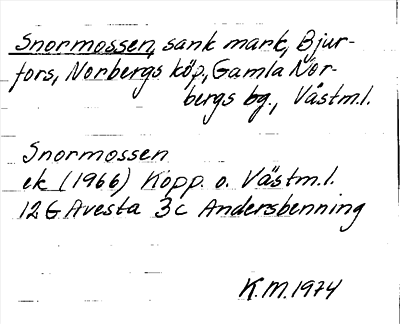 Snormossen, sank mark, Bjur-
fors, Norbergs köp, Gamla Nor-
bergs bg., Västm.l.
Snormossen
ek (1966) Kopp. o. Västm.l.
12 G Avesta 3c Andersbenning
K.M. 1974